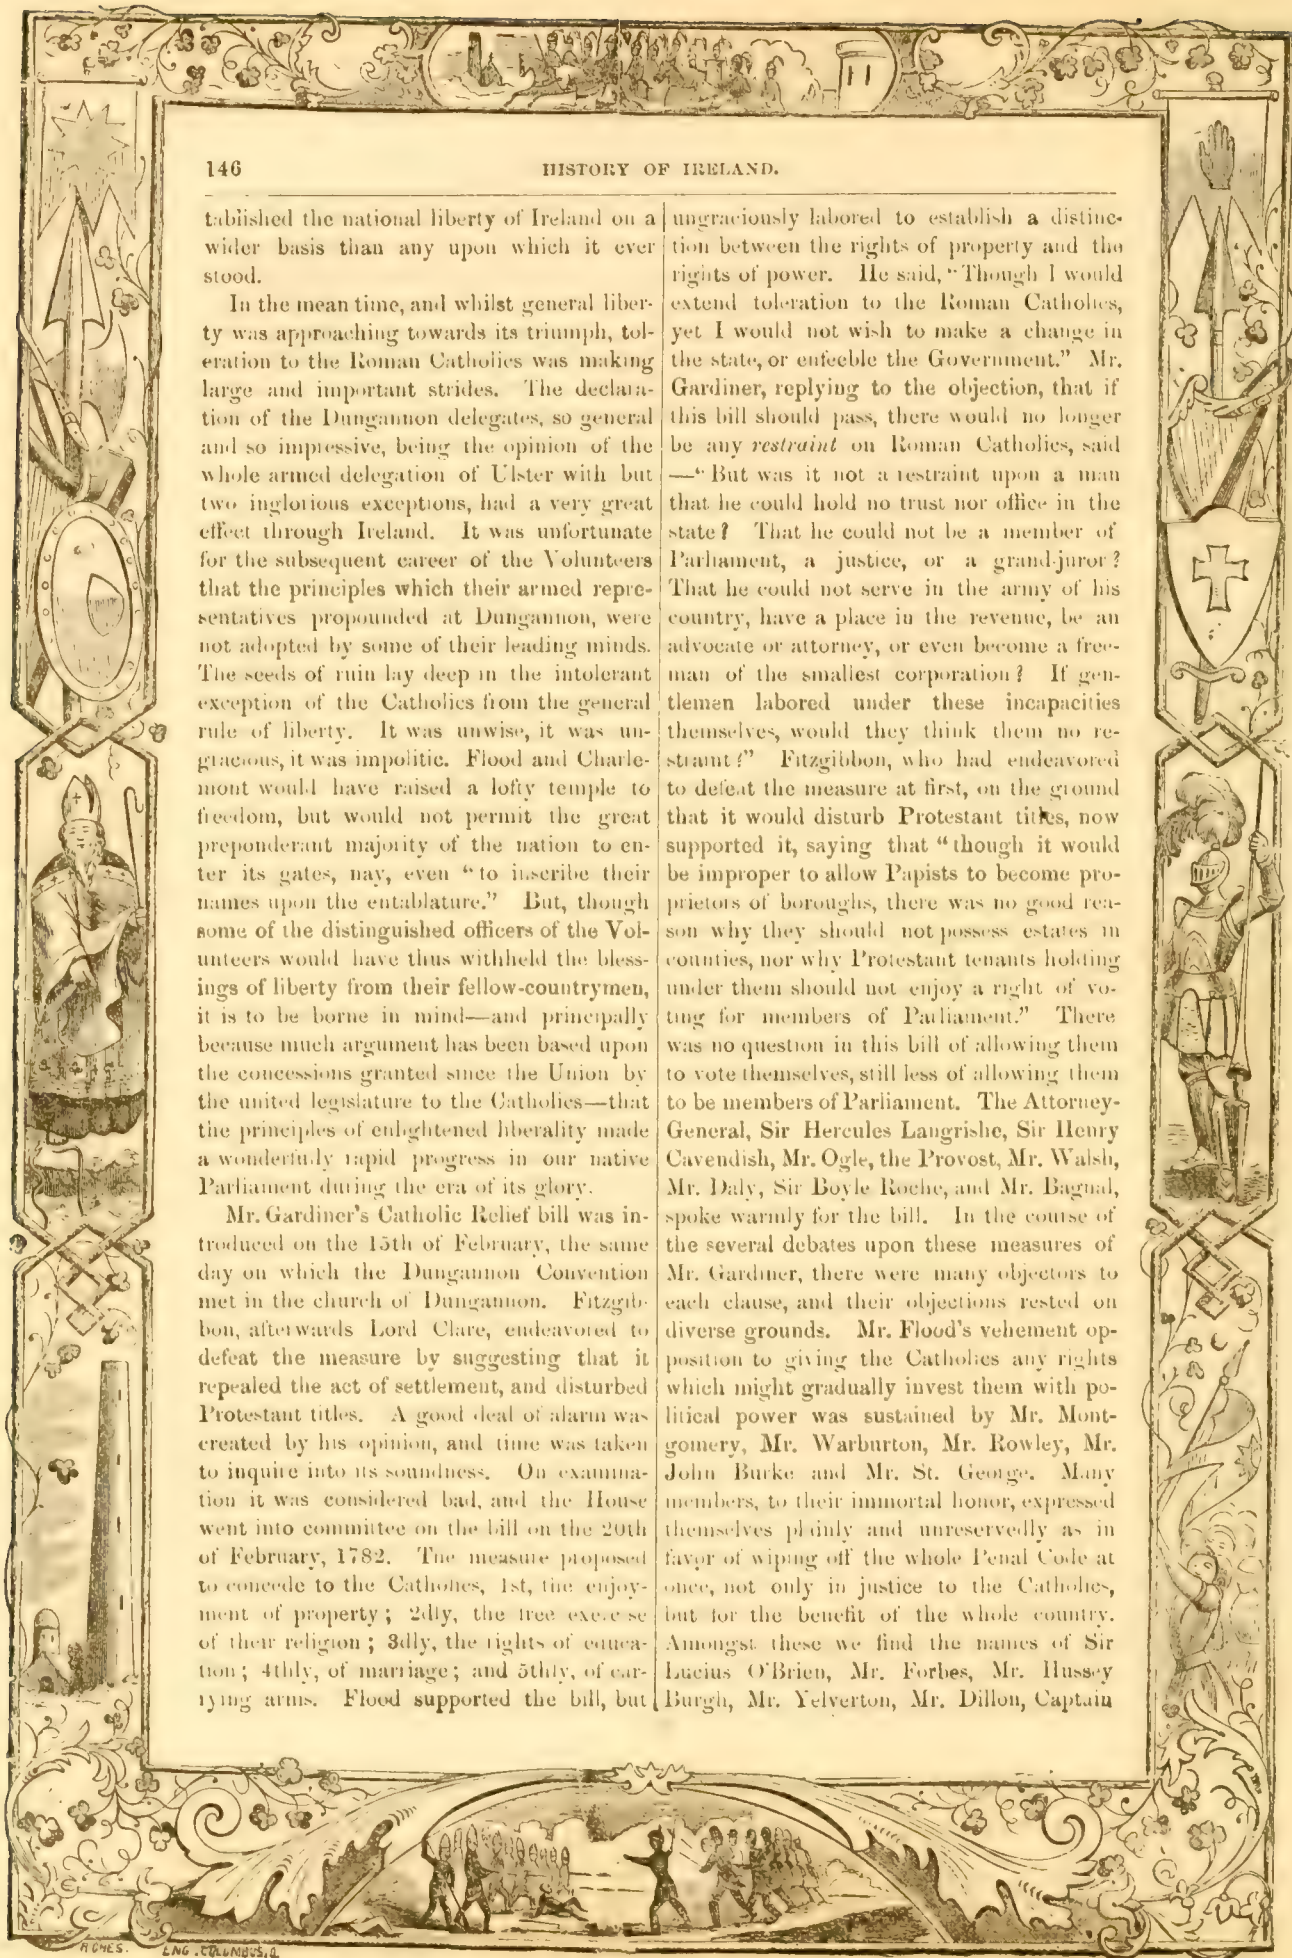 146
HISTORY OF IRELAND.
tablished the national liberty of Ireland on a
wider basis than any upon which it ever
stood.
In the mean time, and whilst general liber-
ty was approaching towards its triumph, tol-
eration to the Roman Catholics was making
large and important strides. The declara-
tion of the Dungannon delegates, so general
and so impressive, being the opinion of the
whole armed delegation of Ulster with but
two inglorious exceptions, had a very great
effect through Ireland. It was unfortunate
for the subsequent career of the Volunteers
that the principles which their armed repre-
sentatives propounded at Dungannon, were
not adopted by some of their leading minds.
The seeds of ruin lay deep in the intolerant
exception of the Catholics from the general
rule of liberty. It was unwise, it was un-
gracious, it was impolitic. Flood and Charle-
mont would have raised a lofty temple to
freedom, but would not permit the great
preponderant majority of the nation to en-
ter its gates, nay, even "to inscribe their
names upon the entablature." But, though
some of the distinguished officers of the Vol-
unteers would have thus withheld the bless-
ings of liberty from their fellow-countrymen,
it is to be borne in mind—and principally
because much argument has been based upon
the concessions granted since the Union by
the united legislature to the Catholics—that
the principles of enlightened liberality made
a wonderfully rapid progress in our native
Parliament during the era of its glory.
Mr. Gardiner's Catholic Relief bill was in-
troduced on the 15th of February, the same
day on which the Dungannon Convention
met in the church of Dungannon. Fitzgib-
bon, afterwards Lord Clare, endeavored to
defeat the measure by suggesting that it
repealed the act of settlement, and disturbed
Protestant titles. A good deal of alarm was
created by his opinion, and time was taken
to inquire into its soundness. On examina-
tion it was considered bad, and the House
went into committee on the bill on the 20th
of February, 1782. The measure proposed
to concede to the Catholics, 1st, the enjoy-
ment of property; 2dly, the free exercise
of their religion; 3dly, the rights of educa-
tion; 4thly, of marriage; and 5thly, of car-
rying arms. Flood supported the bill, but
ungraciously labored to establish a distinc-
tion between the rights of property and the
rights of power. He said, "Though I would
extend toleration to the Roman Catholics,
yet I would not wish to make a change in
the state, or enfeeble the Government." Mr.
Gardiner, replying to the objection, that if
this bill should pass, there would no longer
be any restraint on Roman Catholics, said
—"But was it not a restraint upon a man
that he could hold no trust nor office in the
state? That he could not be a member of
Parliament, a justice, or a grand-juror?
That he could not serve in the army of his
country, have a place in the revenue, be an
advocate or attorney, or even become a free-
man of the smallest corporation? If gen-
tlemen labored under these incapacities
themselves, would they think them no re-
straint?" Fitzgibbon, who had endeavored
to defeat the measure at first, on the ground
that it would disturb Protestant titles, now
supported it, saying that "though it would
be improper to allow Papists to become pro-
prietors of boroughs, there was no good rea-
son why they should not possess estates in
counties, nor why Protestant tenants holding
under them should not enjoy a right of vo-
ting for members of Parliament." There
was no question in this bill of allowing them
to vote themselves, still less of allowing them
to be members of Parliament. The Attorney-
General, Sir Hercules Langrishe, Sir Henry
Cavendish, Mr. Ogle, the Provost, Mr. Walsh,
Mr. Daly, Sir Boyle Roche, and Mr. Bagnal,
spoke warmly for the bill. In the course of
the several debates upon these measures of
Mr. Gardiner, there were many objectors to
each clause, and their objections rested on
diverse grounds. Mr. Flood's vehement op-
position to giving the Catholics any rights
which might gradually invest them with po-
litical power was sustained by Mr. Mont-
gomery, Mr. Warburton, Mr. Rowley, Mr.
John Burke and Mr. St. George. Many
members, to their immortal honor, expressed
themselves plainly and unreservedly as in
favor of wiping off the whole Penal Code at
once, not only in justice to the Catholics,
but for the benefit of the whole country.
Amongst these we find the names of Sir
Lucius O'Brien, Mr. Forbes, Mr. Hussey
Burgh, Mr. Yelverton, Mr. Dillon, Captain
ENG. COLUMBUS, O.